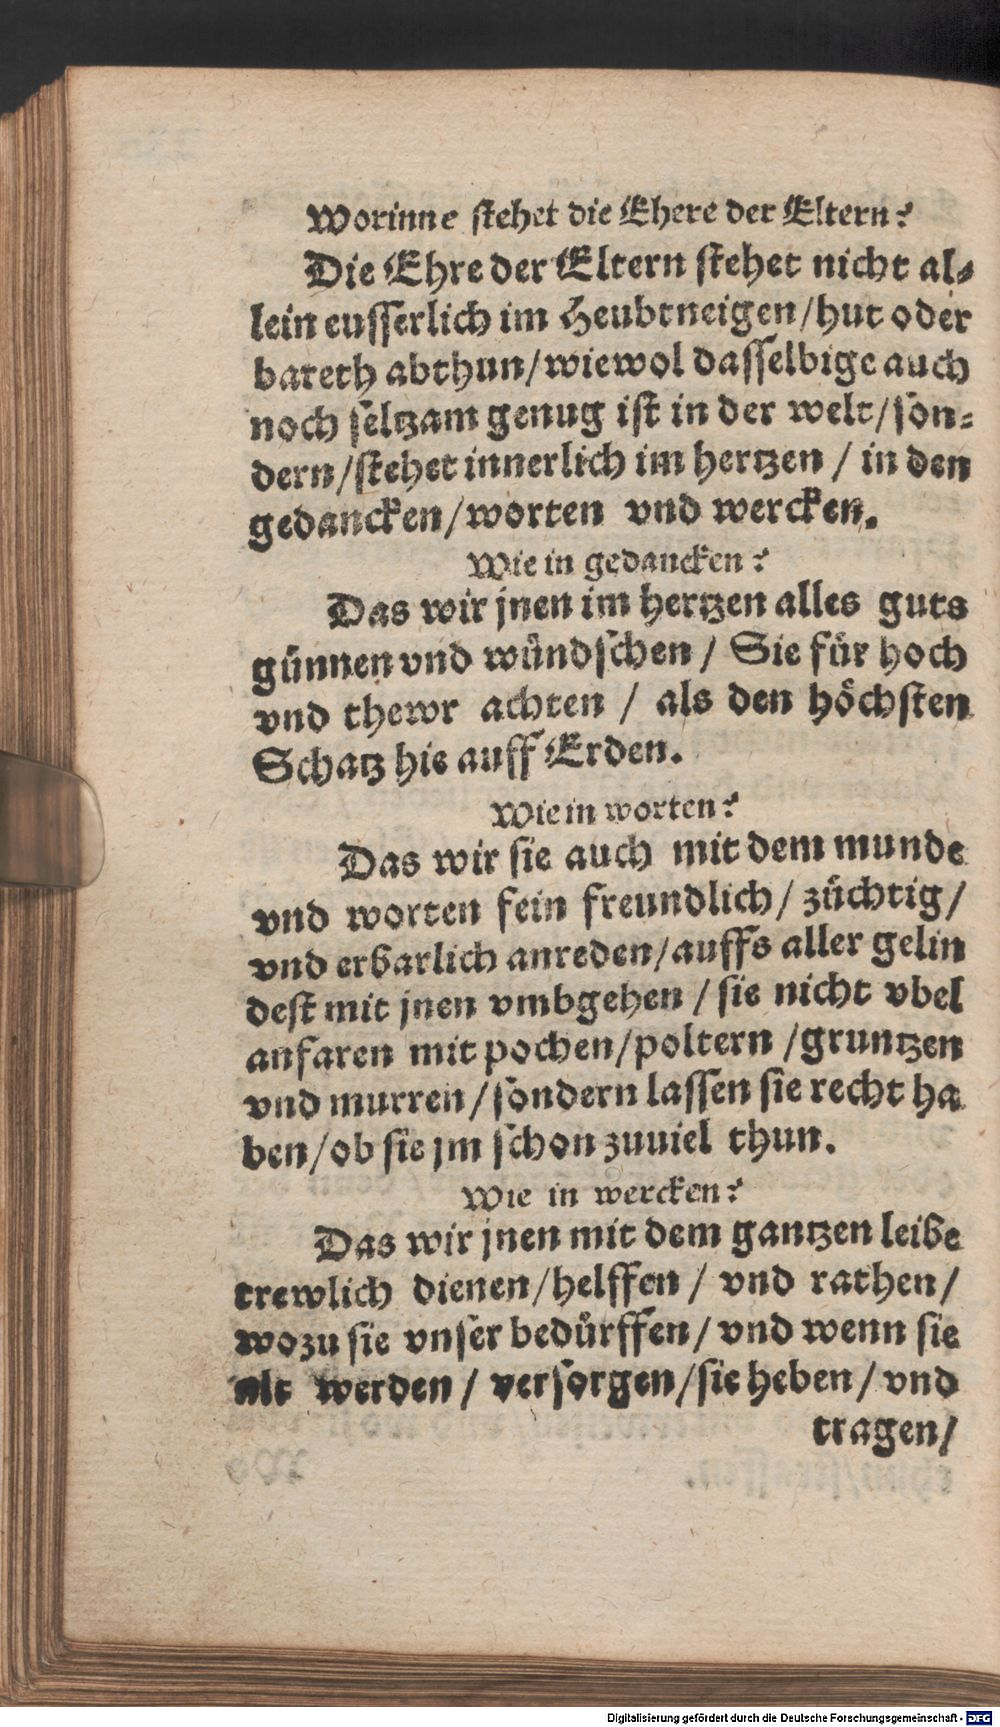 Worinne stehet die Ehere der Eltern?
Die Ehre der Eltern stehet nicht al-
lein eusserlich im Heubtneigen/hut oder
bareth abthun/wiewol dasselbige auch
noch seltzam genug ist in der welt/son-
dern/stehet innerlich im hertzen / in den
gedancken/worten vnd wercken.
Wie in gedancken?
Das wir jnen im hertzen alles guts
günnen vnd wündschen / Sie für hoch
vnd thewr achten / als den höchsten
Schatz hie auff Erden.
Wie in worten?
Das wir sie auch mit dem munde
vnd worten fein freundlich/ züchtig/
vnd erbarlich anreden/auffs aller gelin
dest mit jnen vmbgehen / sie nicht vbel
anfaren mit pochen/poltern /gruntzen
vnd murren/sondern lassen sie recht ha
ben/ob sie jm schon zuuiel thun.
Wie in wercken?
Das wir jnen mit dem gantzen leibe
trewlich dienen/helffen / vnd rathen/
wozu sie vnser bedürffen/ vnd wenn sie
alt werden / versorgen/sie heben/ vnd
tragen/
Digitalisierung gefördert durch die Deutsche Forschungsgemeinschaft - DFG